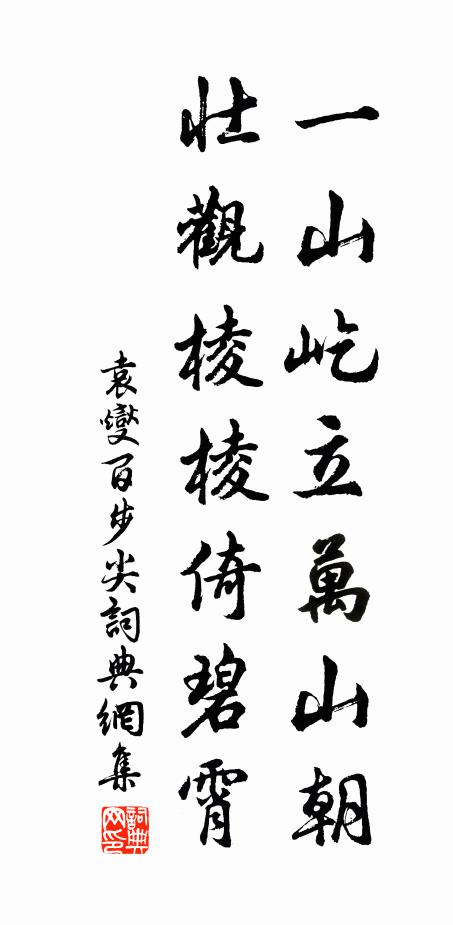 一山屹立萬山朝
壯觀棱棱倚碧霄
袁燮百步尖詞典網集
詞典網印